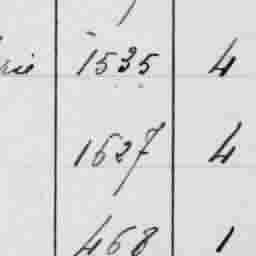 rie 1535 4
1627 4
468 1